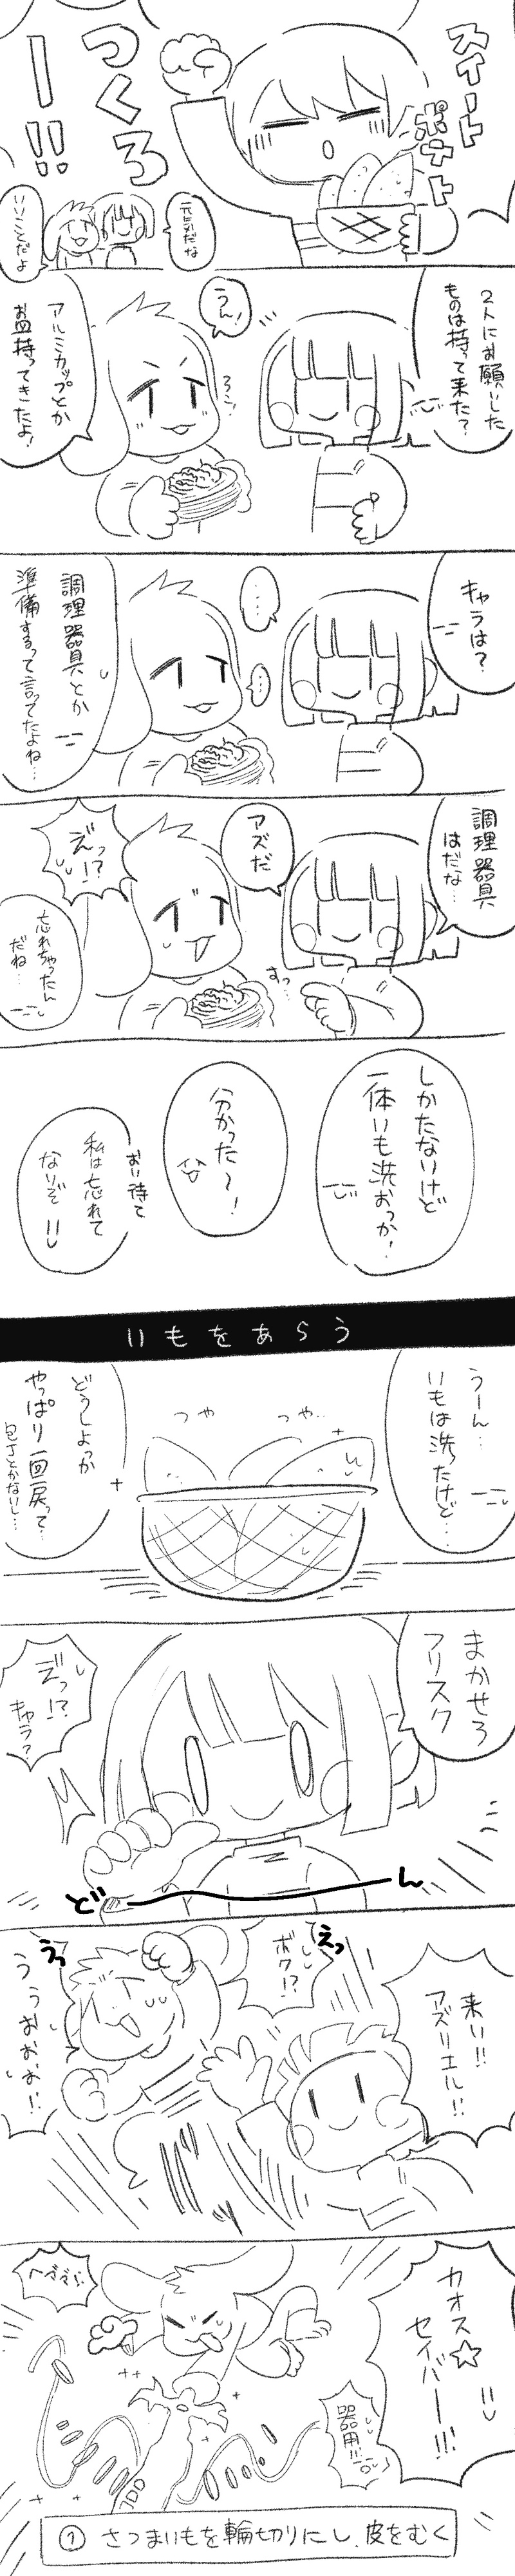 スイート
ポテト
つくろ
ー!!
元気だな
いいことだよ
2人にお願いした
ものは持って来た?
うん!
アルミカップとか
お皿持ってきたよ!
キャラは?
…
…
調理器具とか
準備するって言ってたよね…
調理器具
はだな…
アズだ
すっ…
えっ!?
忘れちゃったん
だね…
しかたないけど
一体いも洗おっか!
分かった〜!
おい待て
私は忘れて
ないぞ!!
いもをあらう
うーん…
いもは洗ったけど…
つや
つや
どうしよっか
やっぱり一回戻って…
包丁とかないし…
まかせろ
フリスク
えっ!?
キャラ?
どーん
来い!!
アズリエル!!
えっ
ボク!?
うっ
うぅおぉぉ!!
カオス☆
セイバー!!!
器用!!!
① さつまいもを輪切りにし、皮をむく